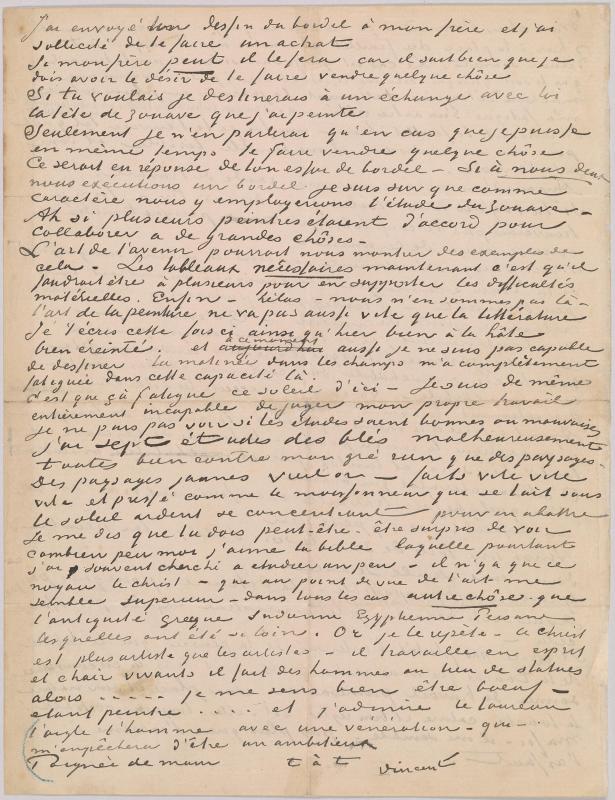 J'ai envoyé ton dessin du bordel à mon frère et j'ai
sollicité de te faire un achat
Si mon frère peut il le fera car il sait bien que je
dois avoir le désir de te faire vendre quelque chôse
Si tu voulais je destinerais à un échange avec toi
la tête de zouave que j'ai peinte
Seulement je n'en parlerai qu'en cas que je puisse
en même temps te faire vendre quelque chôse
Ce serait en réponse de ton essai de bordel – Si à nous deux
nous exécutions un bordel je suis sur que comme
caractère nous y employerions l'étude du zouave –
Ah si plusieurs peintres étaient d'accord pour
collaborer a de grandes chôses –
L'art de l'avenir pourrait nous montrer des exemples de
cela – Les tableaux nécessaires maintenant c'est qu'il
faudrait être à plusieurs pour en supporter les difficultés
matérielles. Enfin – hélas – nous n'en sommes pas là –
l'art de la peinture ne va pas aussi vite que la littérature
Je t'écris cette fois ci ainsi qu'hier bien à la hâte
bien éreinté. et aujourd'hui à ce moment aussi je ne suis pas capable
de dessiner la matinée dans les champs m'a complètement
fatiguée dans cette capacité là.
C'est que çà fatigue ce soleil d'ici – Je suis de même
entièrement incapable de juger mon propre travail
Je ne puis pas voir si les études soient bonnes ou mauvaises
j'ai sept études des blés malheureusement
toutes bien contre mon gré rien que des paysages.
Des paysages jaunes vieil or – faits vite vite
vite et pressé comme le moissonneur qui se tait sous
le soleil ardent se concentrant pour en abattre
Je me dis que tu dois peut-être être surpris de voir
combien peu moi j'aime la bible laquelle pourtant
j'ai souvent cherché a etudier un peu – il n'y a que ce
noyau le christ – qui au point de vue de l'art me
semble superieur – dans tous les cas autre chôse – que
l'antiquité grecque Indienne Egyptienne Persane
lesquelles ont été si loin. Or je le repète – ce Christ
est plus artiste que les artistes – il travaille en esprit
et chair vivants il fait des hommes au lieu de statues
alors . . . . . je me sens bien être boeuf –
etant peintre . . . . et j'admire le taureau
l'aigle l'homme avec une vénération – qui –
m'empêchera d'être un ambitieux
Poignée de main t à t Vincent